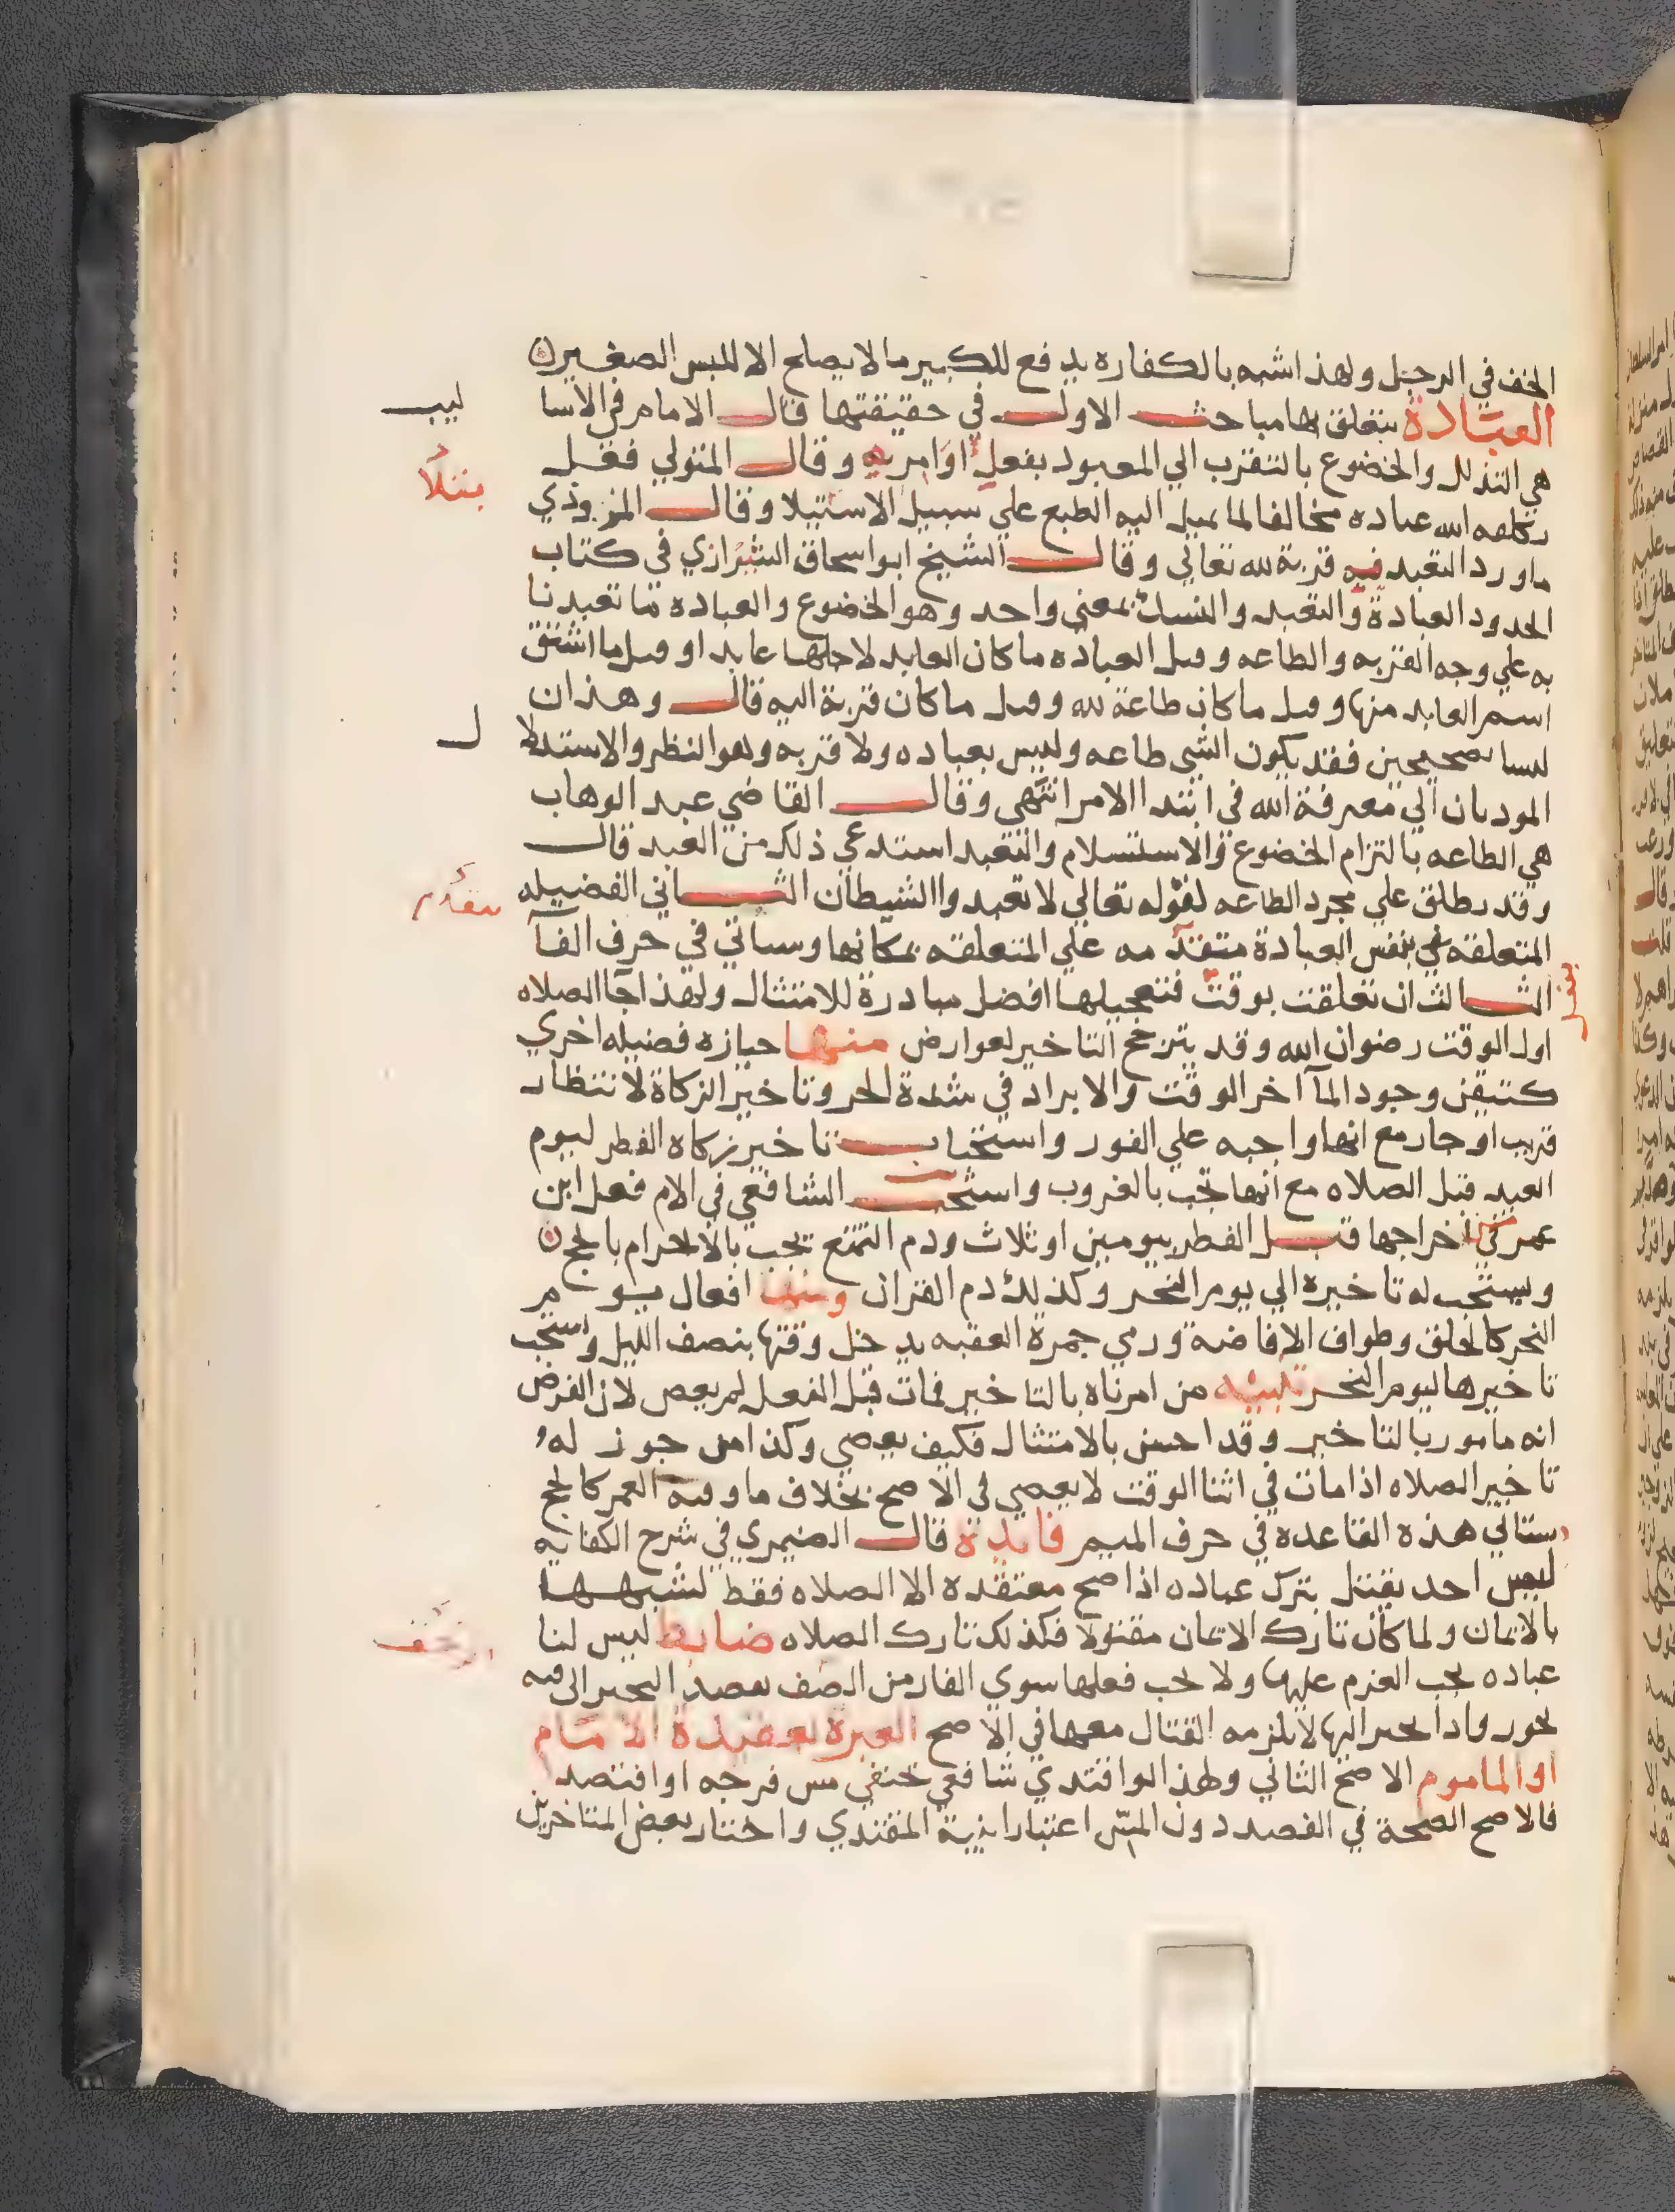 الخف في الرجل ولهذا اشبه بالكفاره يدفع للكبير ما لا يصلح الا للبس الصغير
العبادة يتعلق بها مباحث الاول في حقيقتها قال الامام في الاسا
ليب
هي التذلل والخضوع بالتقرب الي المعبود بفعل اوامره وقال المتولي فعل
يكلفه الله عباده مخالفا لما يميل اليه الطبع علي سبيل الابتلا وقال المروذي
بتلا
ما ورد التعبد فيه قربة لله تعالي وقال الشيخ ابو اسحاق الشيرازي في كتاب
الحدود العبادة والتعبد والنسك بمعني واحد وهو الخضوع والعباده ما تعبدنا
به علي وجه القربه والطاعه وقيل العباده ما كان العابد لاجلها عابد او قيل ما اشتق
اسم العابد منها وقيل ما كان طاعة لله وقيل ما كان قربة اليه قال وهذان
ليسا بصحيحين فقد يكون الشي طاعه وليس بعباده ولا قربه وهو النظر والاستدلا
ل
الموديان الي معرفة الله في ابتدا الامر انتهي وقال القاضي عبد الوهاب
هي الطاعه بالتزام الخضوع والاستسلام والتعبد استدعي ذلك من العبد قال
وقد يطلق علي مجرد الطاعه لقوله تعالي لا تعبدوا الشيطان الثاني الفضيله
المتعلقه بنفس العبادة متقدمه علي المتعلقه بمكانها وسياتي في حرف الفآ
الثالث ان تعلقت بوقت فتعجيلها افضل مبادرة للامتثال ولهذا جا الصلاه
اول الوقت رضوان الله وقد يترجح التاخير لعوارض منها حيازه فضيله اخري
كتيقن وجود المآ اخر الوقت والابراد في شدة الحر وتاخير الزكاة لانتظار
قريب او جار مع انها واجبه علي الفور واستحباب تاخير زكاة الفطر ليوم
العيد قبل الصلاه مع انها تجب بالغروب واستحب الشافعي في الام فعل ابن
عمر في اخراجها قبل الفطر بيومين او ثلاث ودم التمتع يجب بالاحرام بالحج
ويستحب له تاخيره الي يوم النحر وكذلك دم القران ومنها افعال يوم
النحر كالحلق وطواف الافاضة ورمي جمرة العقبه يدخل وقتها بنصف الليل ويستحب
تاخيرها ليوم النحر تنبيه من امرناه بالتاخير فمات قبل الفعل لم يعص لان الفرض
انه مامور بالتاخير وقد احسن بالامتثال فكيف يعصي وكذا من جوز له
تاخير الصلاه اذا مات في اثنا الوقت لا يعصي في الاصح بخلاف ما وقته العمر كالحج
ستاتي هذه القاعده في حرف الميم فايدة قال الصيمري في شرح الكفايه
ليس احد يقتل بترك عباده اذا صح معتقده الا الصلاه فقط لشبهها
بالايمان ولما كان تارك الايمان مقتولا فكذلك تارك الصلاه ضابط ليس لنا
عباده يجب العزم عليها ولا يجب فعلها سوي الفار من الصف بقصد التحيز الي فيه
يجوز واذا تحيز اليها لا يلزمه القتال معها في الاصح العبرة بعقيدة الامام
او الماموم الاصح الثاني ولهذا لو اقتدي شافعي بحنفي مس فرجه او افتصد
فالاصح الصحة في الفصد دون المس اعتبارا بنية المقتدي واختار بعض المتاخرين